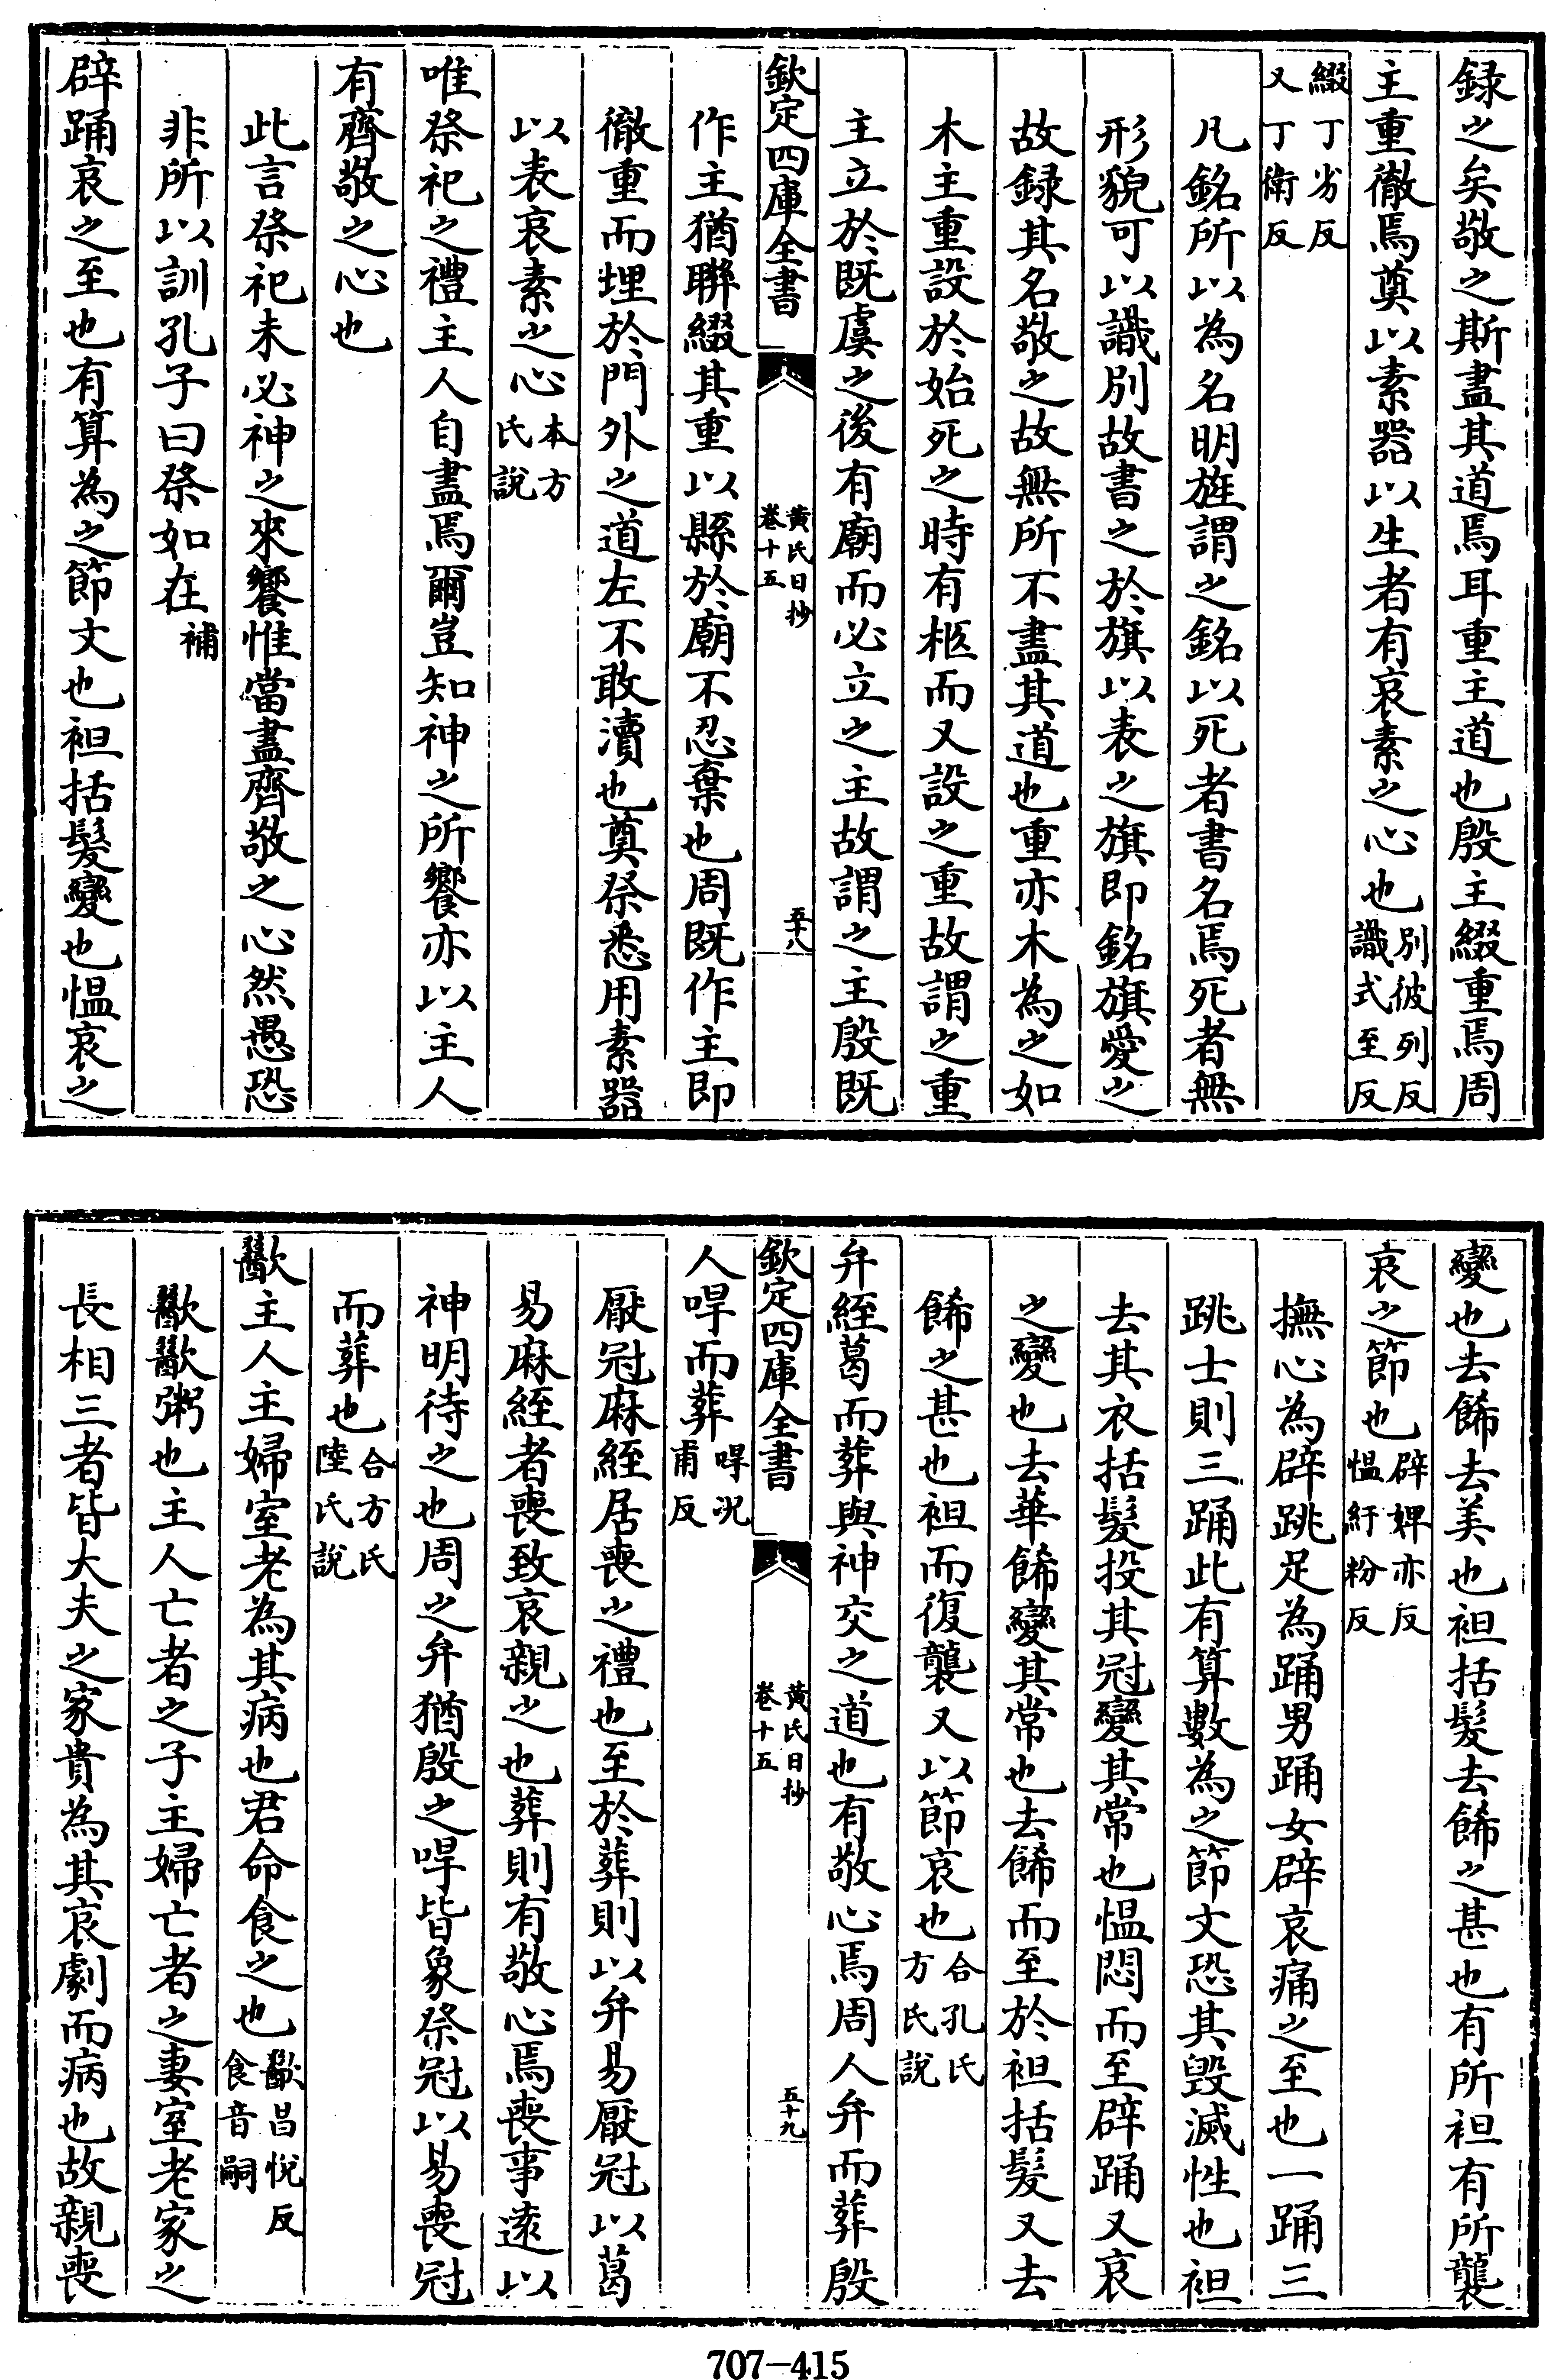 録之矣敬之斯盡其道焉耳重主道也殷主綴重焉周
主重徹焉奠以素器以生者有哀素之心也別彼列反識式至反
綴丁劣反又丁衛反
凡銘所以為名明旌謂之銘以死者書名焉死者無
形貌可以識別故書之於旗以表之旗即銘旗愛之
故録其名敬之故無所不盡其道也重亦木為之如
木主重設於始死之時有柩而又設之重故謂之重
主立於既虞之後有廟而必立之主故謂之主殷既
欽定四庫全書
黃氏日抄
卷十五
五十八
作主猶聨綴其重以縣於廟不忍棄也周既作主即
徹重而埋於門外之道左不敢瀆也奠祭悉用素器
以表哀素之心本方氏說
唯祭祀之禮主人自盡焉爾豈知神之所饗亦以主人
有齊敬之心也
此言祭祀未必神之來饗惟當盡齊敬之心然愚恐
非所以訓孔子曰祭如在補
辟踊哀之至也有算為之節文也袒括髮變也慍哀之
變也去餙去美也袒括髮去餙之甚也有所袒有所襲
哀之節也辟婢亦反慍紆粉反
撫心為辟跳足為踊男踊女辟哀痛之至也一踊三
跳士則三踊此有算數為之節文恐其毁滅性也袒
去其衣括髮投其冠變其常也慍悶而至辟踊又哀
之變也去華餙變其常也去餙而至於袒括髮又去
餙之甚也袒而復襲又以節哀也合孔氏方氏說
弁絰葛而葬與神交之道也有敬心焉周人弁而葬殷
欽定四庫全書
黃氏日抄
卷十五
五十九
人哻而葬哻況甫反
厭冠麻絰居喪之禮也至於葬則以弁易厭冠以葛
易麻絰者喪致哀親之也葬則有敬心焉喪事逺以
神明待之也周之弁猶殷之哻皆象祭冠以易喪冠
而葬也合方氏陸氏說
歠主人主婦室老為其病也君命食之也歠昌悅反食音嗣
歠歠粥也主人亡者之子主婦亡者之妻室老家之
長相三者皆大夫之家貴為其哀劇而病也故親喪
707—415